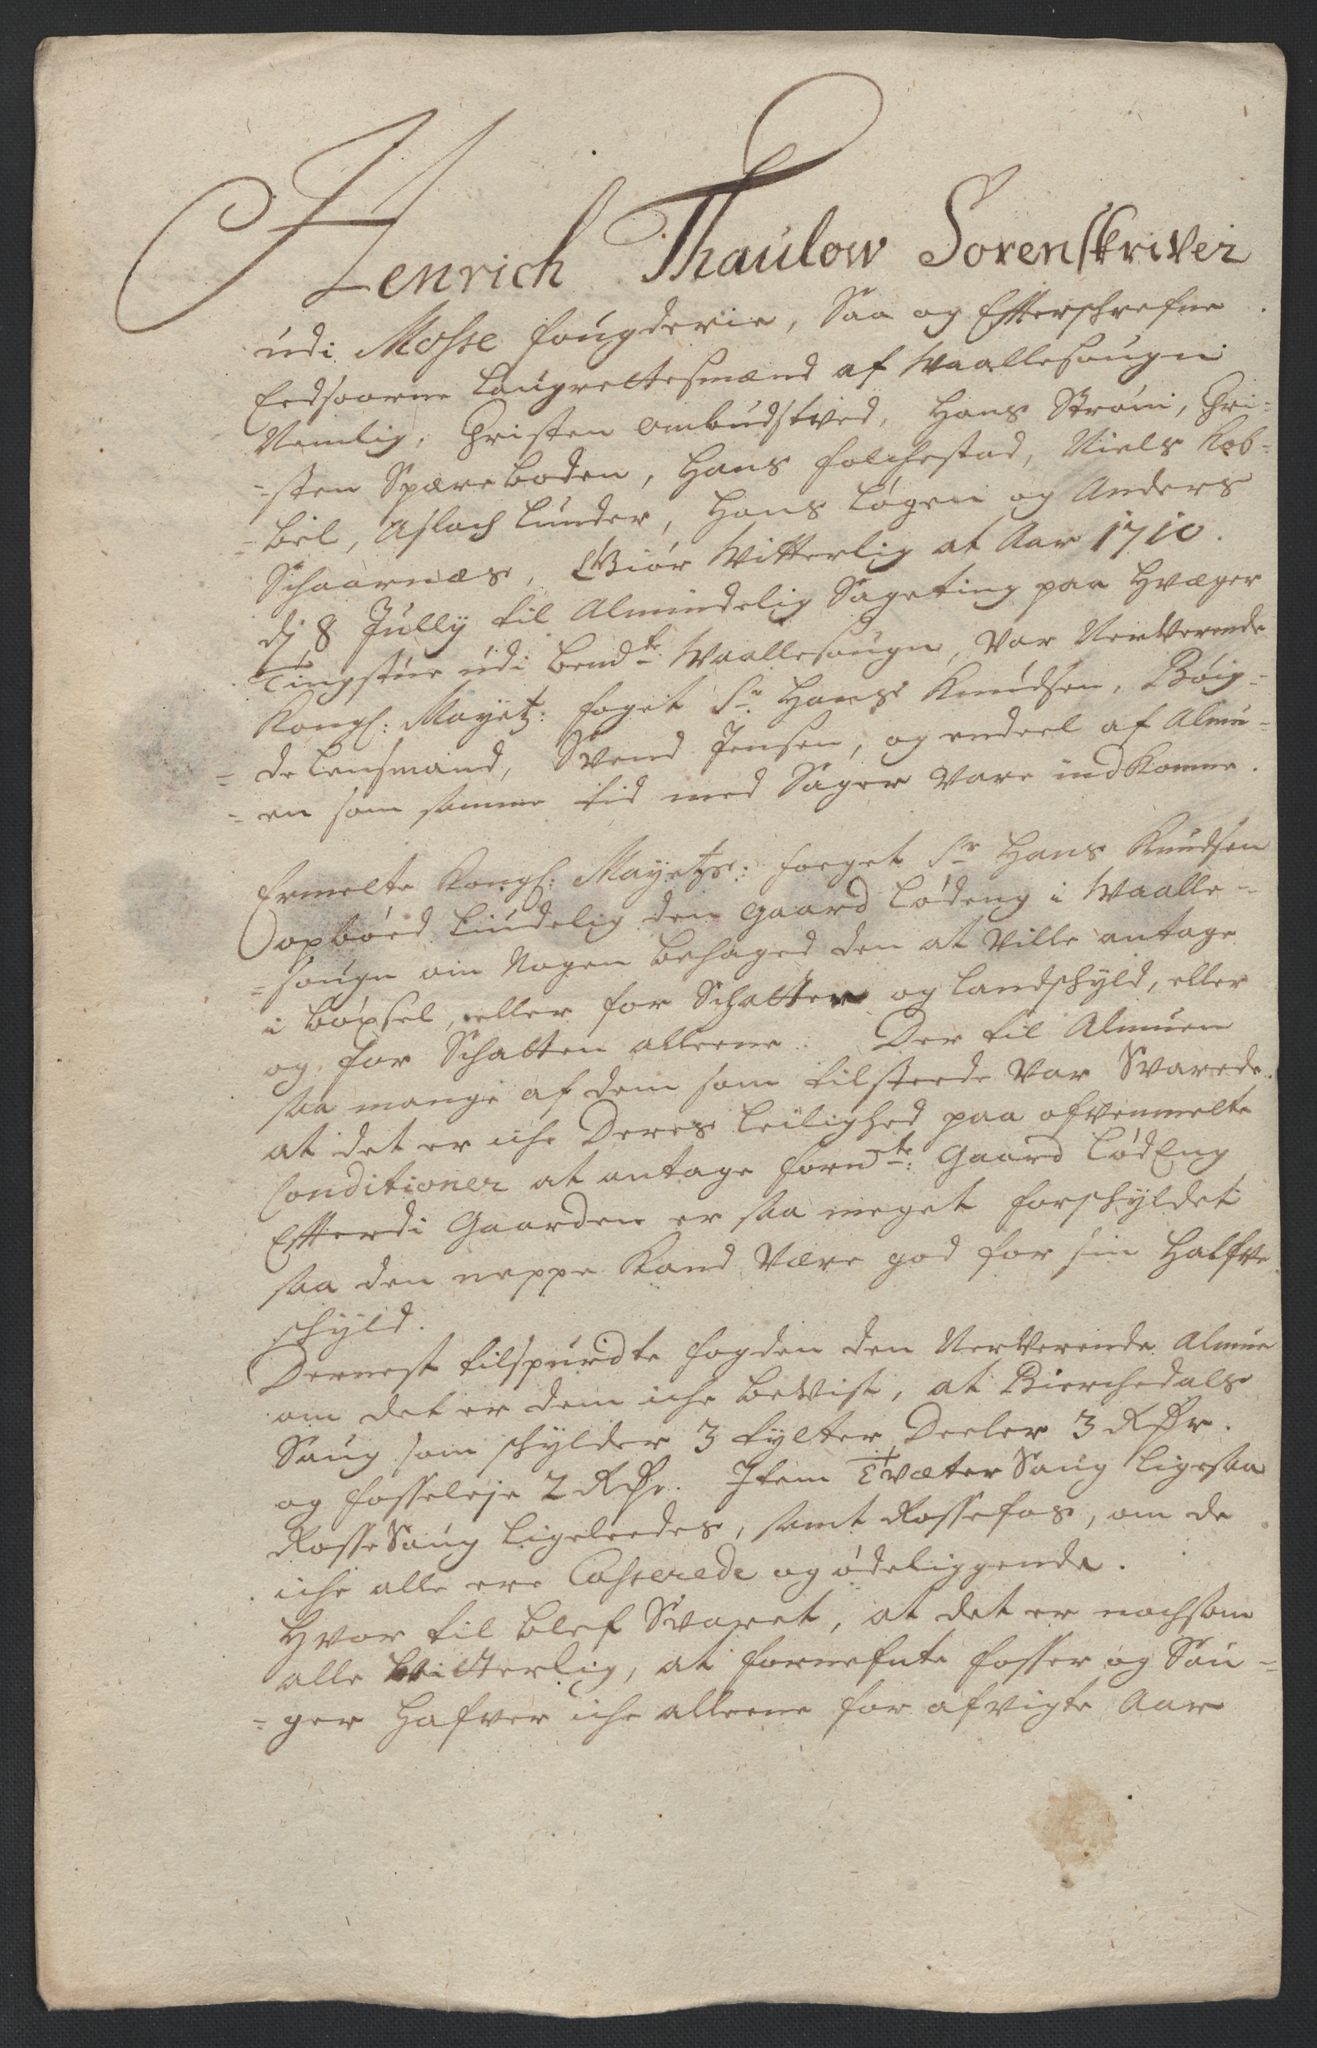 Henrich Thaulow Sorenskriver
udi Mosse fougderie, Saa og Effterschrefne
Eedsoorne Laugrettesmænd af Waallesougn
Nemlig, Christen Ombudstved, Hans Strøm, Chri-
-sten Spæreboden, Hans Folchestad, Niels Kob-
-bel, Aslach Lunder, Hans Løgen og Anders
Schaarnæs, Giør Witterlig at Aar 1710.
dj 8 Jully til Almindelig Sageting paa Hvæger
Tingstue udi bemdte Waallesougn, var Nerverende
Kongl: Mayetz: foget Sr Hans Knudsen, Bøig-
-de Lensmand, Svend Jensen, og endeel af Almu-
-en som samme tid med Sager vare indkomne.
Ermelte Kongl: Mayetz: foeget Sr Hans Knudsen
opbøed Liudelig den gaard Lødeng i Waalle-
-sougn om Nogen behaged den at Ville antage
i bøxsel, eller for Schatter og Landschyld, eller
og for Schatten alleene. Der til Almuen
saa mange af dem som tilsteede var Svarede.
at det er iche Deres Leilighed paa ofvenmelte
Conditioner at antage forndte: Gaard LødEng
Effterdi Gaarden er saa meget forschyldet
saa den neppe Kand være god for sin Halfve
schyld.
Dernest tilspurdte fogden den Nerverende Almue
om det er dem iche bevist, at Bierchedals
Saug som schylder 3 tylter Deeler 3 Rdr.
og fosseleje 2 Rdr. Item Tvæter Saug ligesaa
RosseSaug ligeleedes, samt Rossefos, om de
iche alle ere Casserede og ødeliggende.
Hvor til blef Svaret, at det er nochsom
alle Witterlig, at fornefnte fosser og Sau-
-ger hafver iche alleene for afvigte Aar